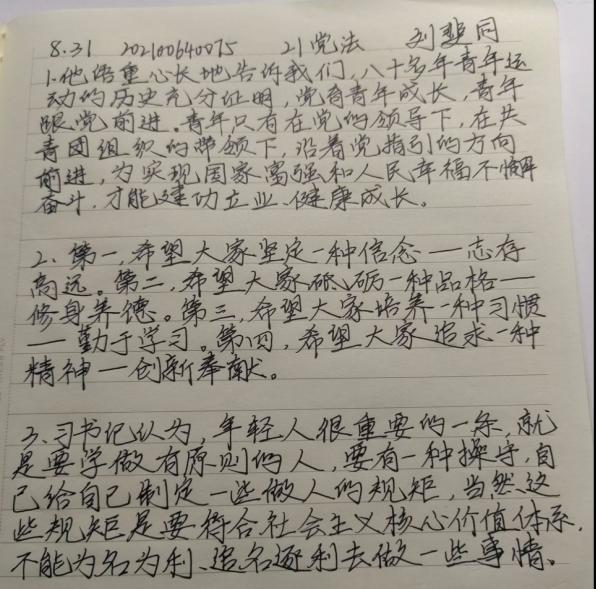 8.31 202100640075 21党法 刘斐同
1.他语重心长地告诉我们,八十多年青年运
动的历史充分证明,党育青年成长,青年
跟党前进。青年只有在党的领导下,在共
青团组织的带领下,沿着党指引的方向
前进,为实现国家富强和人民幸福不懈
奋斗,才能建功立业、健康成长。
2、第一,希望大家坚定一种信念——志存
高远。第二,希望大家砥砺一种品格——
修身养德。第三,希望大家培养一种习惯
——勤于学习。第四,希望大家追求一种
精神——创新奉献。
3、习书记认为,年轻人很重要的一条,就
是要学做有原则的人,要有一种操守,自
己给自己制定一些做人的规矩,当然这
些规矩是要符合社会主义核心价值体系,
不能为名为利、追名逐利去做一些事情。